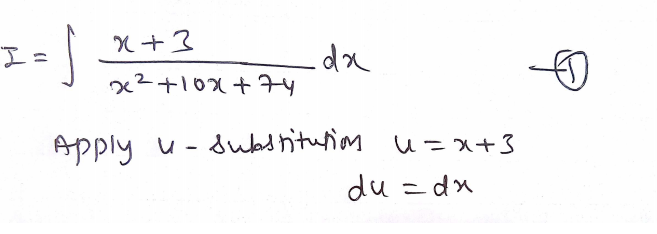 I = ∫ x+3 / x²+10x+74 dx —①
Apply u-substitution u=x+3
du = dx